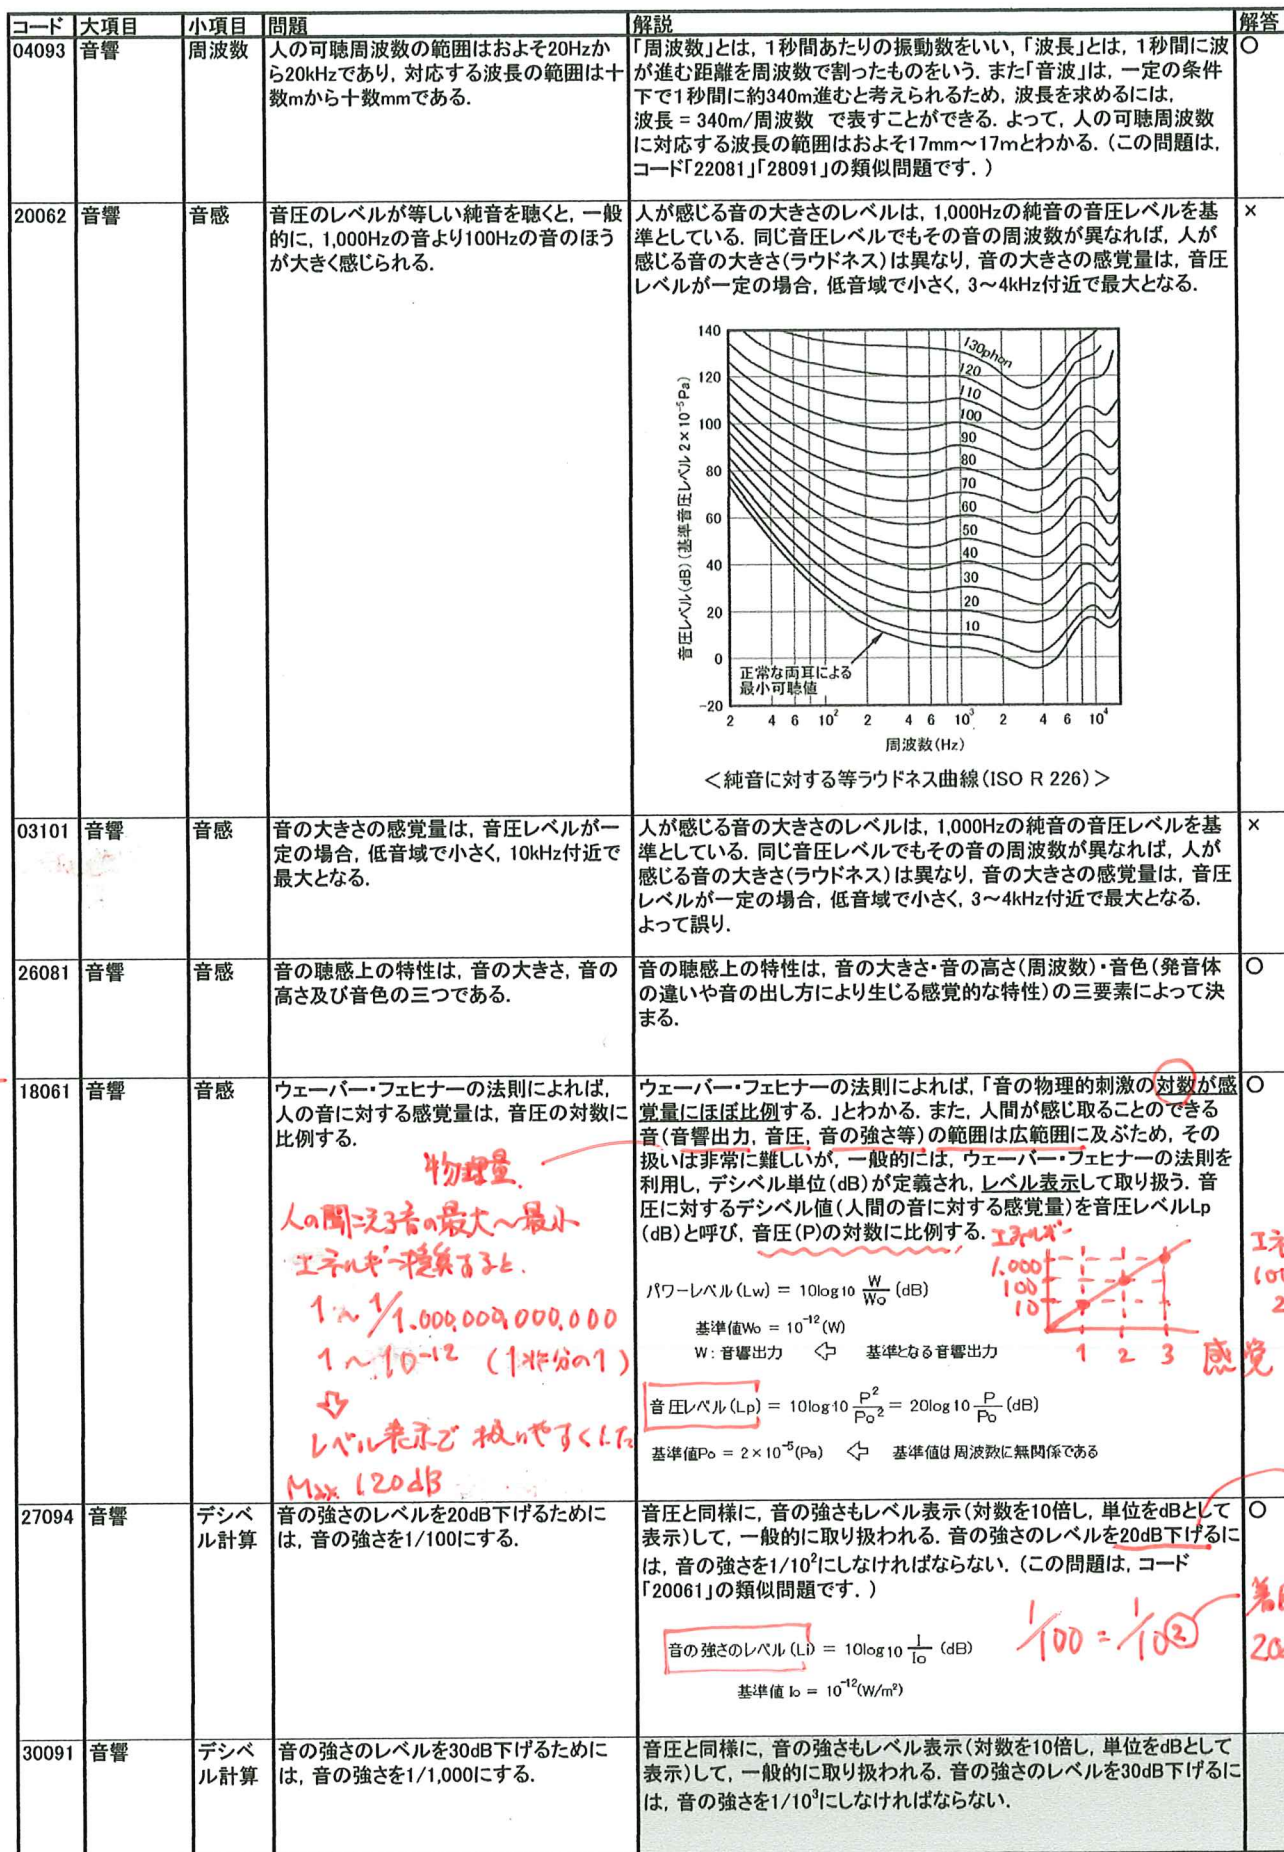 コード 大項目 小項目 問題 解説 解答
04093 音響 周波数
人の可聴周波数の範囲はおよそ20Hzか
ら20kHzであり, 対応する波長の範囲は十
数mから十数mmである.
「周波数」とは, 1秒間あたりの振動数をいい, 「波長」とは, 1秒間に波
が進む距離を周波数で割ったものをいう. また「音波」は, 一定の条件
下で1秒間に約340m進むと考えられるため, 波長を求めるには,
波長 = 340m/周波数 で表すことができる. よって, 人の可聴周波数
に対応する波長の範囲はおよそ17mm～17mとわかる. (この問題は,
コード「22081」「28091」の類似問題です. )
○
20062 音響 音感
音圧のレベルが等しい純音を聴くと, 一般
的に, 1,000Hzの音より100Hzの音のほう
が大きく感じられる.
人が感じる音の大きさのレベルは, 1,000Hzの純音の音圧レベルを基
準としている. 同じ音圧レベルでもその音の周波数が異なれば, 人が
感じる音の大きさ(ラウドネス)は異なり, 音の大きさの感覚量は, 音圧
レベルが一定の場合, 低音域で小さく, 3～4kHz付近で最大となる.
×
音圧レベル(dB)(基準音圧レベル 2×10⁻⁵Pa)
140
120
100
80
60
40
20
0
-20
130phon
120
110
100
90
80
70
60
50
40
30
20
10
正常な両耳による
最小可聴値
2 4 6 10² 2 4 6 10³ 2 4 6 10⁴
周波数(Hz)
＜純音に対する等ラウドネス曲線(ISO R 226)＞
03101 音響 音感
音の大きさの感覚量は, 音圧レベルが一
定の場合, 低音域で小さく, 10kHz付近で
最大となる.
人が感じる音の大きさのレベルは, 1,000Hzの純音の音圧レベルを基
準としている. 同じ音圧レベルでもその音の周波数が異なれば, 人が
感じる音の大きさ(ラウドネス)は異なり, 音の大きさの感覚量は, 音圧
レベルが一定の場合, 低音域で小さく, 3～4kHz付近で最大となる.
よって誤り.
×
26081 音響 音感
音の聴感上の特性は, 音の大きさ, 音の
高さ及び音色の三つである.
音の聴感上の特性は, 音の大きさ・音の高さ(周波数)・音色(発音体
の違いや音の出し方により生じる感覚的な特性)の三要素によって決
まる.
○
18061 音響 音感
ウェーバー・フェヒナーの法則によれば,
人の音に対する感覚量は, 音圧の対数に
比例する.
物理量.
人の聞こえる音の最大～最小
エネルギー換算すると.
1～1/1.000,000,000,000
1～10⁻¹² (1兆分の1)
⇩
レベル表示で 扱いやすくした
Max 120dB
ウェーバー・フェヒナーの法則によれば, 「音の物理的刺激の対数が感
覚量にほぼ比例する. 」とわかる. また, 人間が感じ取ることのできる
音(音響出力, 音圧, 音の強さ等)の範囲は広範囲に及ぶため, その
扱いは非常に難しいが, 一般的には, ウェーバー・フェヒナーの法則を
利用し, デシベル単位(dB)が定義され, レベル表示して取り扱う. 音
圧に対するデシベル値(人間の音に対する感覚量)を音圧レベルLp
(dB)と呼び, 音圧(P)の対数に比例する.
○
エネルギー
1.000
100
10
1 2 3 感覚
パワーレベル(Lw) = 10log10 W/Wo (dB)
基準値Wo = 10⁻¹²(W)
W: 音響出力 ⇦ 基準となる音響出力
音圧レベル(Lp) = 10log10 P²/Po² = 20log10 P/Po (dB)
基準値Po = 2×10⁻⁵(Pa) ⇦ 基準値は周波数に無関係である
27094 音響 デシベ
ル計算
音の強さのレベルを20dB下げるために
は, 音の強さを1/100にする.
音圧と同様に, 音の強さもレベル表示(対数を10倍し, 単位をdBとして
表示)して, 一般的に取り扱われる. 音の強さのレベルを20dB下げるに
は, 音の強さを1/10²にしなければならない. (この問題は, コード
「20061」の類似問題です. )
○
音の強さのレベル(Li) = 10log10 I/Io (dB)
基準値 Io = 10⁻¹²(W/m²)
1/100 = 1/10②
30091 音響 デシベ
ル計算
音の強さのレベルを30dB下げるために
は, 音の強さを1/1,000にする.
音圧と同様に, 音の強さもレベル表示(対数を10倍し, 単位をdBとして
表示)して, 一般的に取り扱われる. 音の強さのレベルを30dB下げるに
は, 音の強さを1/10³にしなければならない.